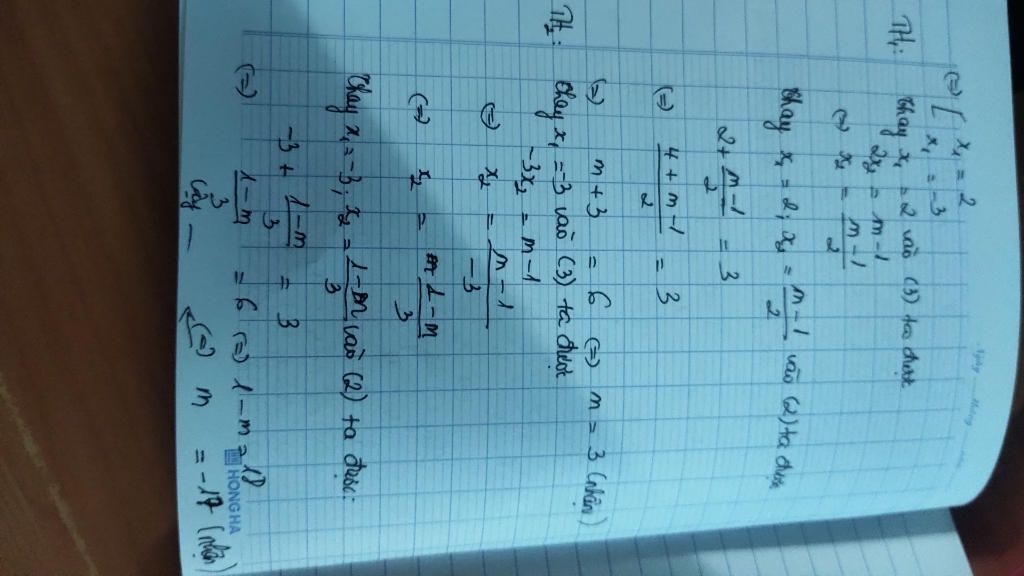 (=) [ x₁ = 2
x₁ = -3
TH₁: thay x₁ = 2 vào (3) ta được
2x₂ = m-1
(=) x₂ = (m-1)/2
thay x₁ = 2; x₂ = (m-1)/2 vào (2) ta được
2 + (m-1)/2 = 3
(=) (4+m-1)/2 = 3
(=) m+3 = 6 (=) m = 3 (nhận)
TH₂: thay x₁ = -3 vào (3) ta được
-3x₂ = m-1
(=) x₂ = (m-1)/-3
(=) x₂ = (1-m)/3
thay x₁ = -3; x₂ = (1-m)/3 vào (2) ta được:
-3 + (1-m)/3 = 3
(=) (1-m)/3 = 6 (=) 1-m = 18
(=) m = -17 (nhận)
Vậy
HONG HA